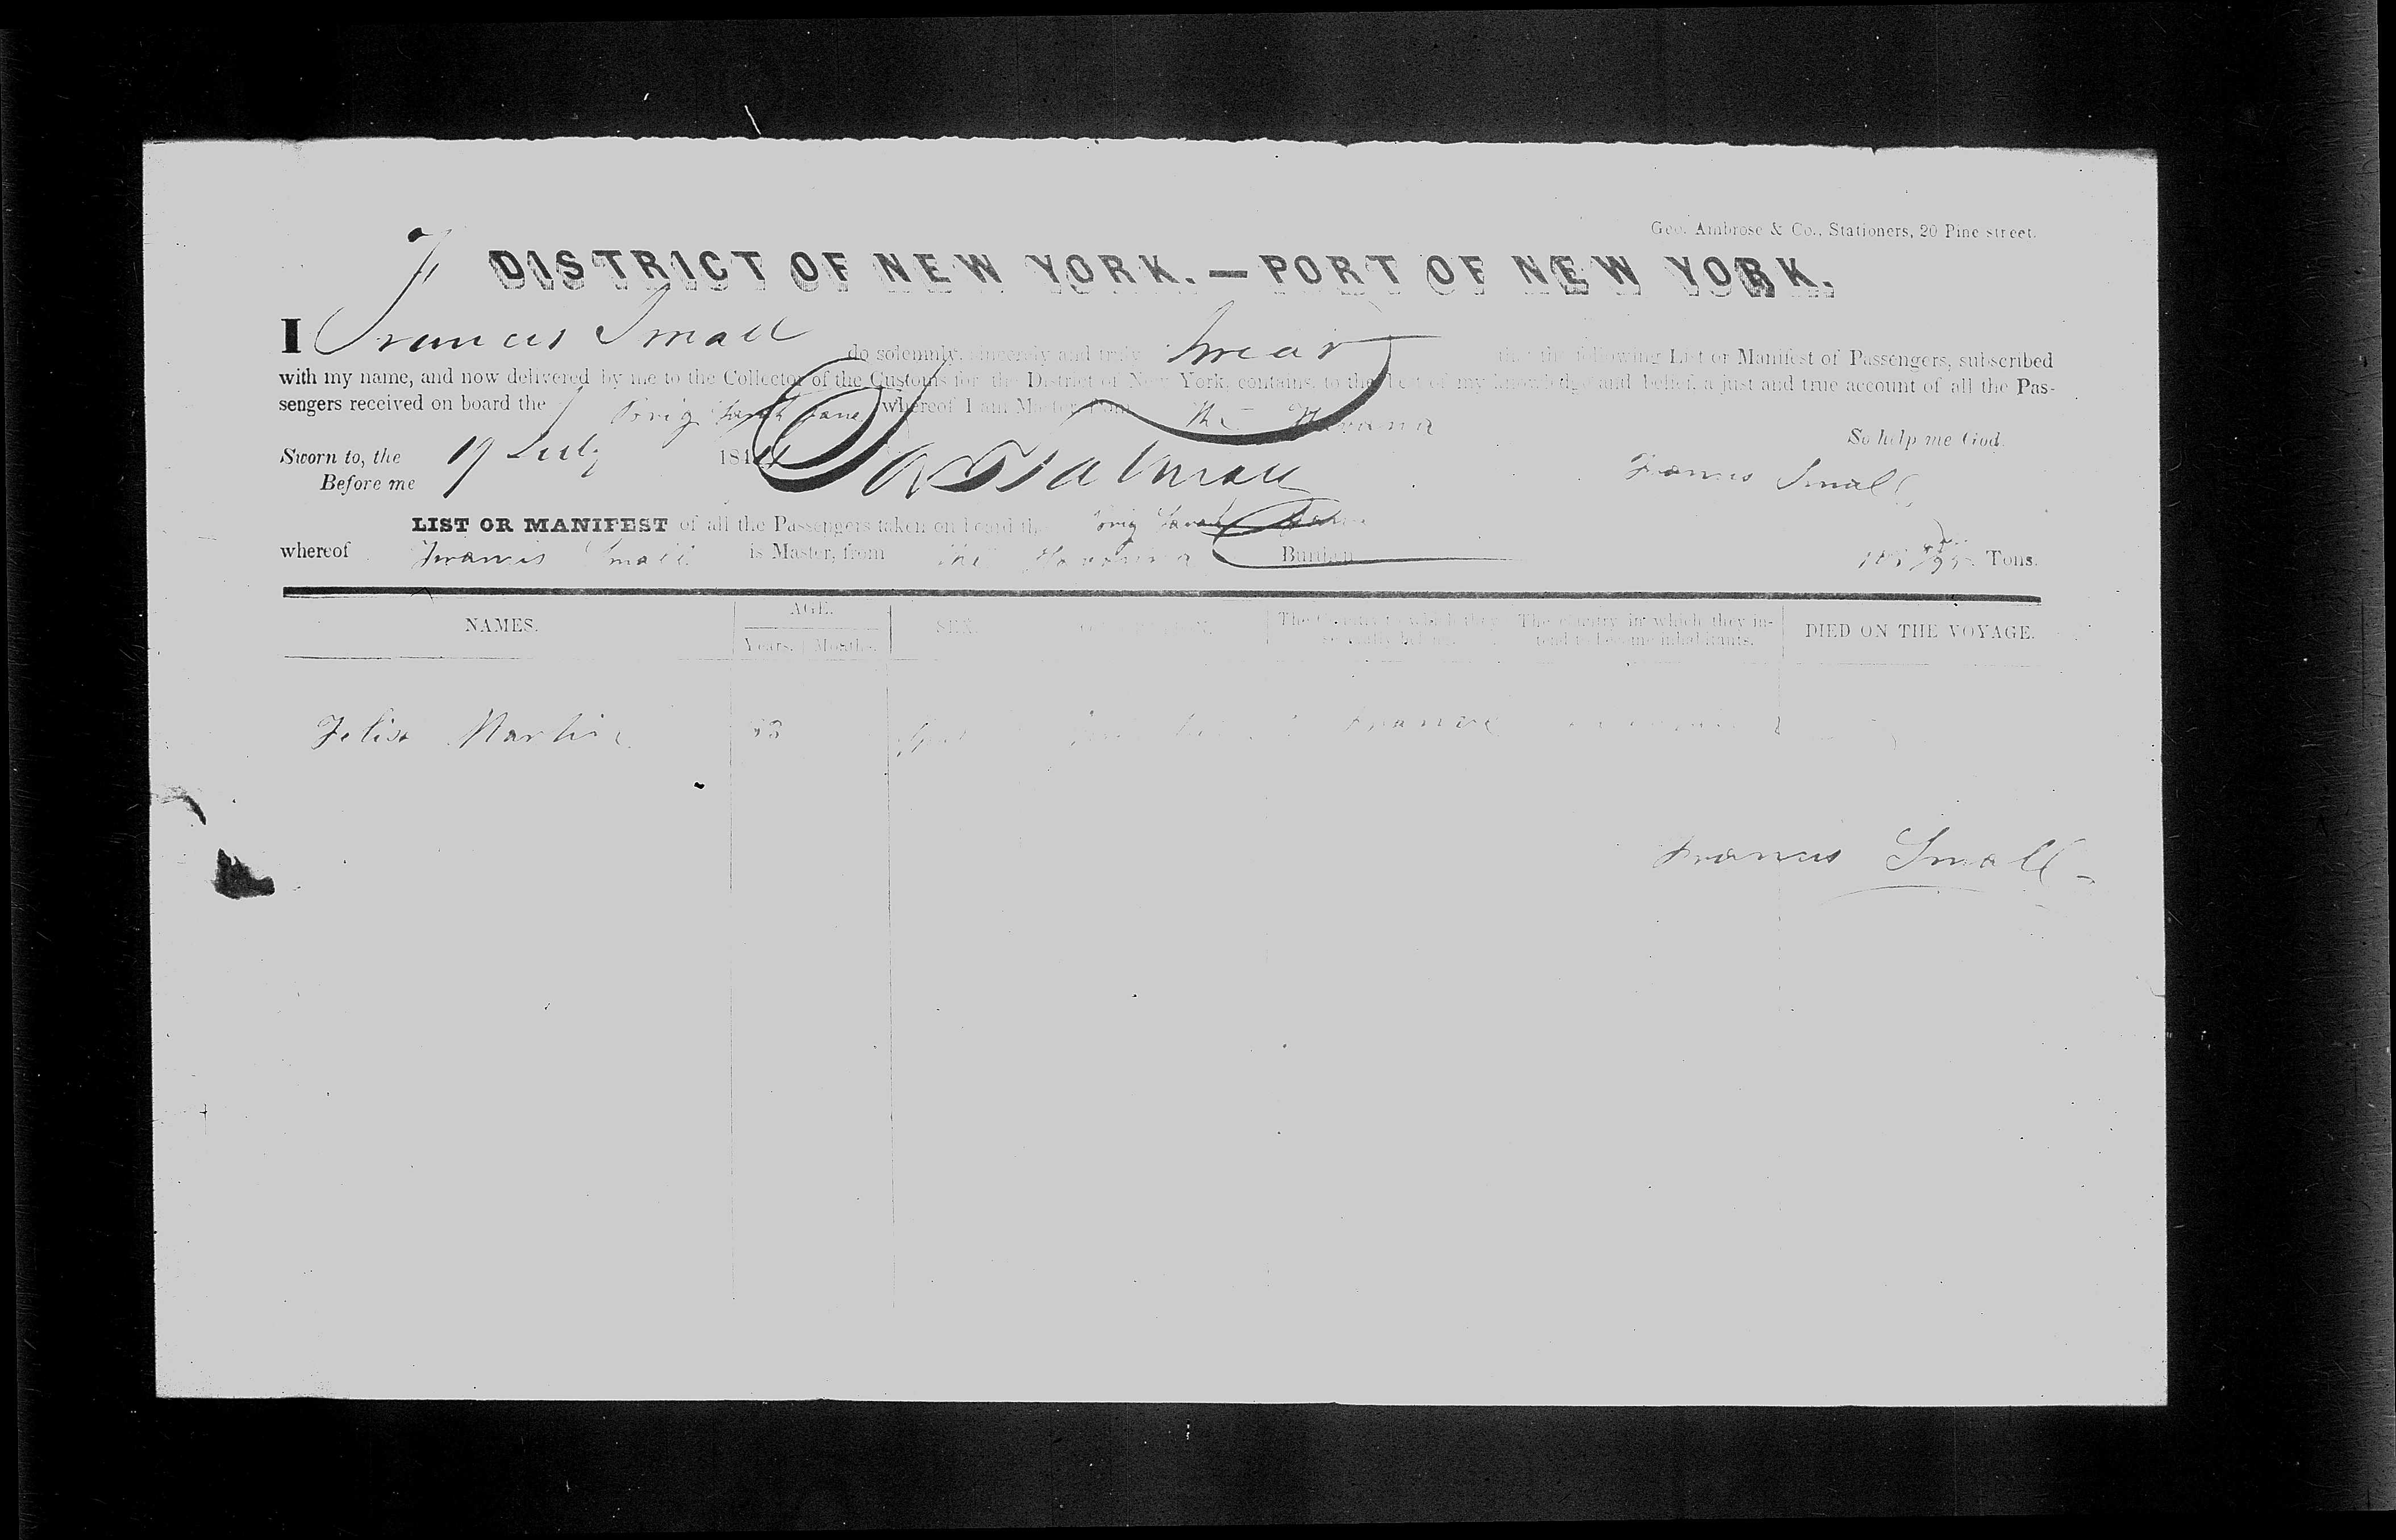 Geo. Ambrose & Co., Stationers, 20 Pine street.
DISTRICT OF NEW YORK.—PORT OF NEW YORK.
I Francis Small do solemnly, sincerely and truly Swear that the following List or Manifest of Passengers, subscribed
with my name, and now delivered by me to the Collector of the Customs for the District of New York, contains, to the best of my knowledge and belief, a just and true account of all the Pas-
sengers received on board the Brig Sarah Jane whereof I am Master, from The Havana
So help me God.
Sworn to, the 19 July 184
Before me Francis Small
LIST OR MANIFEST of all the Passengers taken on board the Brig Sarah Jane
whereof Francis Small is Master, from The Havanna Burthen Tons.
NAMES. AGE. Years. Months. SEX. OCCUPATION. The Country to which they severally belong. The country in which they in-tend to become inhabitants. DIED ON THE VOYAGE.
Felix Martin France
Francis Small